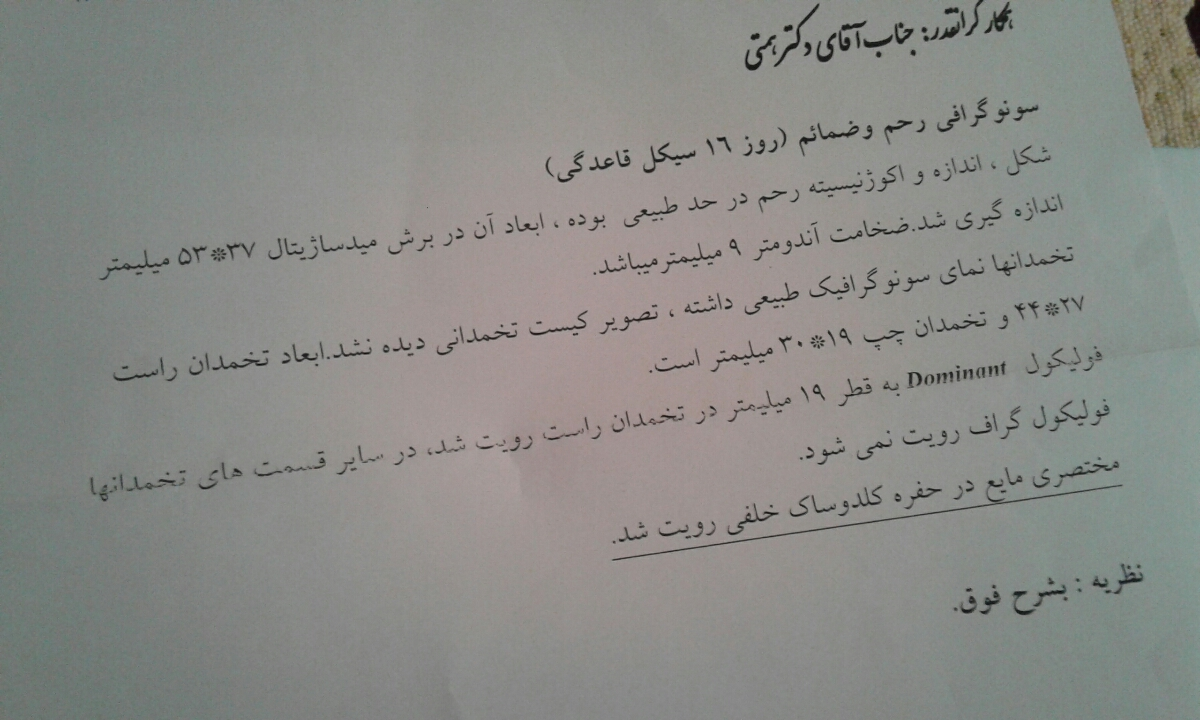 همکار گرانقدر: جناب آقای دکتر همتی
سونوگرافی رحم وضمائم (روز ۱۶ سیکل قاعدگی)
شکل ، اندازه و اکوژنیسیته رحم در حد طبیعی بوده ، ابعاد آن در برش میدساژیتال ۳۷*۵۳ میلیمتر
اندازه گیری شد.ضخامت آندومتر ۹ میلیمترمیباشد.
تخمدانها نمای سونوگرافیک طبیعی داشته ، تصویر کیست تخمدانی دیده نشد.ابعاد تخمدان راست
۲۷*۴۴ و تخمدان چپ ۱۹*۳۰ میلیمتر است.
فولیکول Dominant به قطر ۱۹ میلیمتر در تخمدان راست رویت شد، در سایر قسمت های تخمدانها
فولیکول گراف رویت نمی شود.
مختصری مایع در حفره کلدوساک خلفی رویت شد.
نظریه : بشرح فوق.